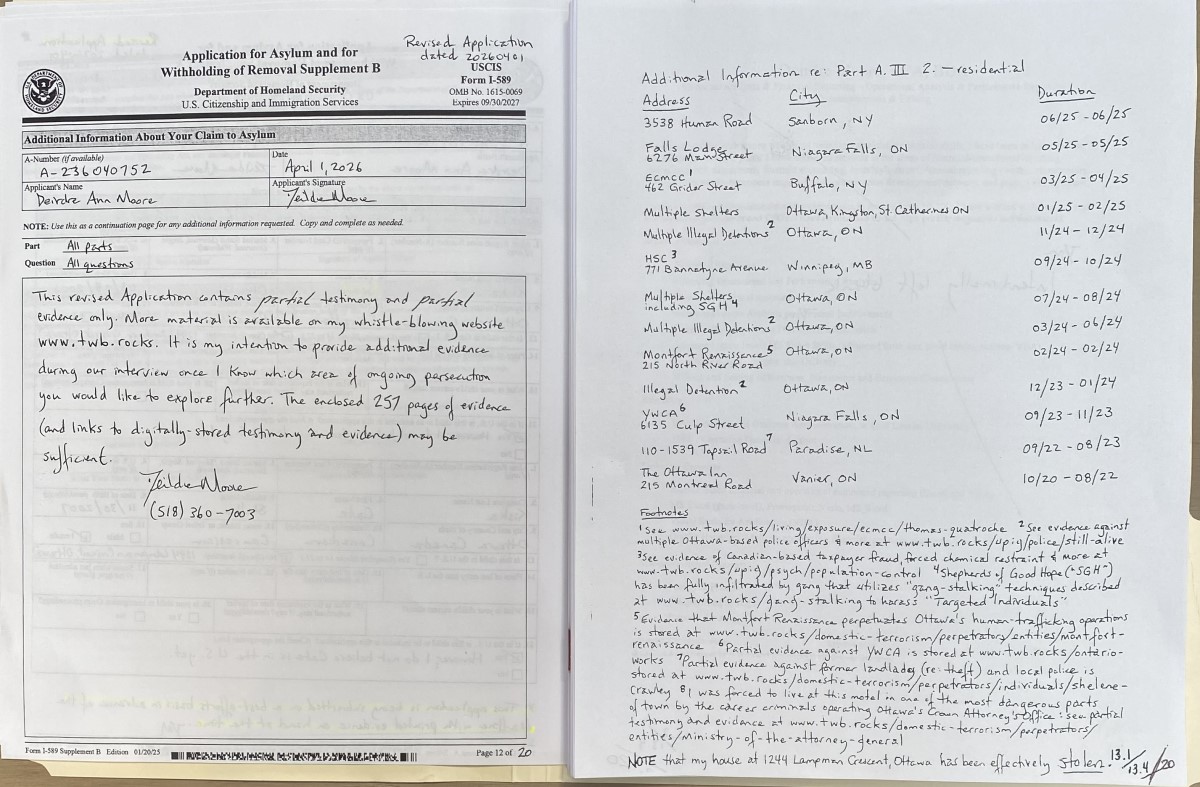 Revised Application
dated 20260401
Application for Asylum and for
Withholding of Removal Supplement B
Department of Homeland Security
U.S. Citizenship and Immigration Services
USCIS
Form I-589
OMB No. 1615-0069
Expires 09/30/2027
Additional Information About Your Claim to Asylum
A-Number (if available)
A-236040752
Date
April 1, 2026
Applicant's Name
Deirdre Ann Moore
Applicant's Signature
NOTE: Use this as a continuation page for any additional information requested. Copy and complete as needed.
Part All parts
Question All questions
This revised Application contains partial testimony and partial
evidence only. More material is available on my whistle-blowing website
www.twb.rocks. It is my intention to provide additional evidence
during our interview once I know which area of ongoing persecution
you would like to explore further. The enclosed 257 pages of evidence
(and links to digitally-stored testimony and evidence) may be
sufficient.
(518) 360-7003
Form I-589 Supplement B Edition 01/20/25
Page 12 of 20
Additional Information re: Part A.III 2. – residential
Address City Duration
3538 Human Road Sanborn, NY 06/25 - 06/25
Falls Lodge
6276 Main Street Niagara Falls, ON 05/25 - 05/25
ECMCC 1
462 Grider Street Buffalo, NY 03/25 - 04/25
Multiple Shelters Ottawa, Kingston, St. Catherines ON 01/25 - 02/25
Multiple Illegal Detentions 2 Ottawa, ON 11/24 - 12/24
HSC 3
771 Bannatyne Avenue Winnipeg, MB 09/24 - 10/24
Multiple Shelters
including SGH 4 Ottawa, ON 07/24 - 08/24
Multiple Illegal Detentions 2 Ottawa, ON 03/24 - 06/24
Montfort Renaissance 5 Ottawa, ON 02/24 - 02/24
215 North River Road
Illegal Detention 2 Ottawa, ON 12/23 - 01/24
YWCA 6
6135 Culp Street Niagara Falls, ON 09/23 - 11/23
110-1539 Topsail Road 7 Paradise, NL 09/22 - 08/23
The Ottawa Inn
215 Montreal Road Vanier, ON 10/20 - 08/22
Footnotes
1 See www.twb.rocks/living/exposure/ecmcc/thomas-quatroche 2 See evidence against
multiple Ottawa-based police officers & more at www.twb.rocks/upig/police/still-alive
3 See evidence of Canadian-based taxpayer fraud, forced chemical restraint & more at
www.twb.rocks/upig/psych/population-control 4 Shepherds of Good Hope ("SGH")
has been fully infiltrated by gang that utilizes "gang-stalking" techniques described
at www.twb.rocks/gang-stalking to harass "Targeted Individuals"
5 Evidence that Montfort Renaissance perpetuates Ottawa's human-trafficking operations
is stored at www.twb.rocks/domestic-terrorism/perpetrators/entities/montfort-
renaissance 6 Partial evidence against YWCA is stored at www.twb.rocks/ontario-
works 7 Partial evidence against former landlady (re: theft) and local police is
stored at www.twb.rocks/domestic-terrorism/perpetrators/individuals/shelene-
crawley 8 I was forced to live at this motel in one of the most dangerous parts
of town by the career criminals operating Ottawa's Crown Attorney's Office: see partial
testimony and evidence at www.twb.rocks/domestic-terrorism/perpetrators/
entities/ministry-of-the-attorney-general
NOTE that my house at 1244 Lampman Crescent, Ottawa has been effectively stolen.
13.1/13.4/20